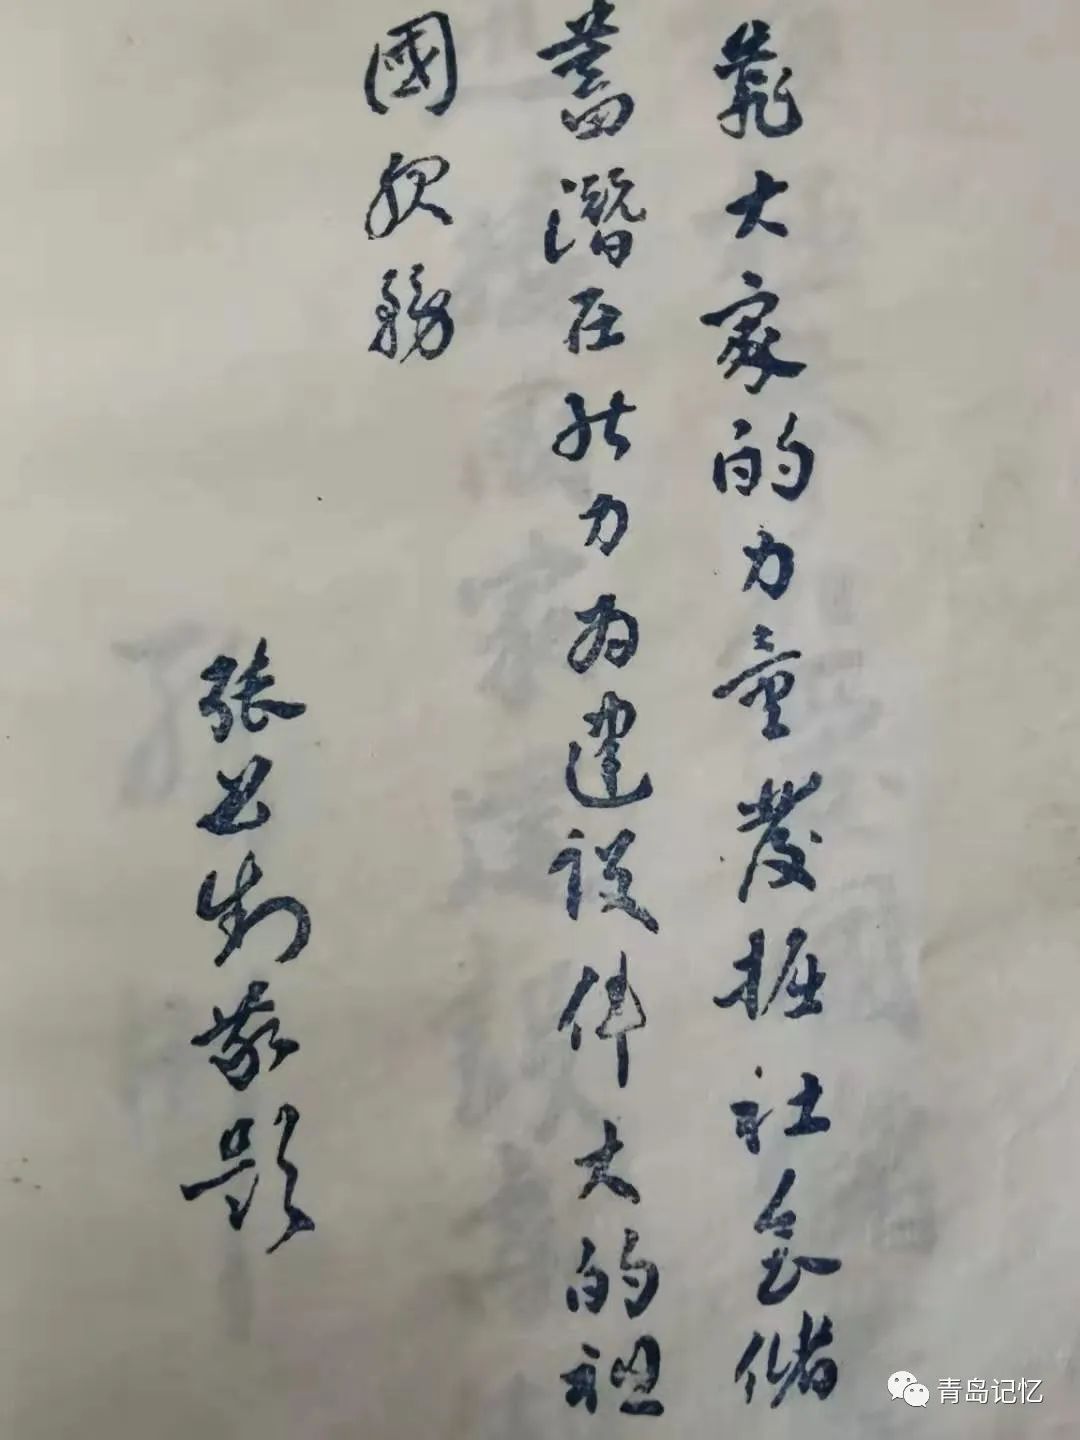 靠大家的力量发掘社会储
蓄潜在能力为建设伟大的祖
國服務
张公制敬题
青岛记忆